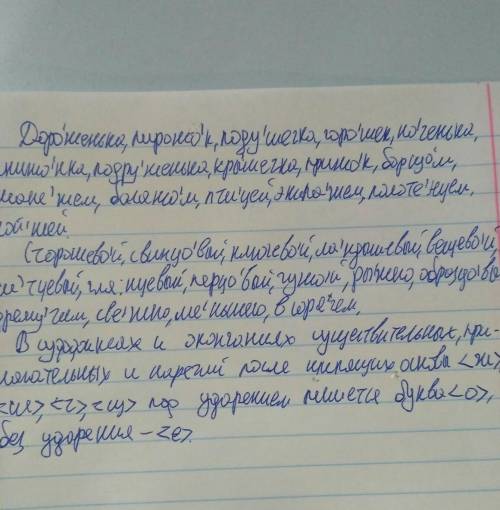 Доро́женька, пирожо́к, поду́шечка, горо́шек, но́ченька,
подру́женька, кры́шечка, прыжо́к, борщо́м,
мане́жем, багажо́м, пти́цей, экипа́жем, полоте́нцем,
(Горошевой, свинцо́вый, ключево́й, ла́ндышевый, вещево́й
гля́нцевый, перцо́вый, чужо́й, ры́жего, образцо́во
све́жего, ме́ньшего, в горя́чем.
В суффиксах и окончаниях существительных, при-
лагательных и наречий после шипящих основы <ж>,
<ш>, <ч>, <щ> под ударением пишется буква <о>,
без ударения - <е>.